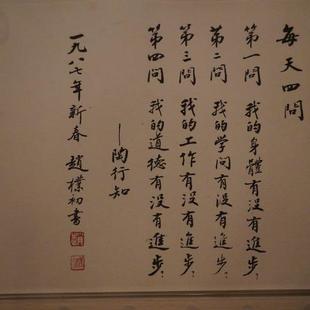 每天四問
第一問 我的身體有沒有進步？
第二問 我的学问有沒有進步？
第三問 我的工作有沒有進步？
第四問 我的道德有沒有進步？
—陶行知
一九八七年新春 趙樸初书